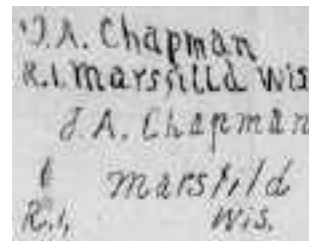 J.A. Chapman
R.1. Marsfilld Wis
J A. Chapman
Marsfild
R.1, Wis.